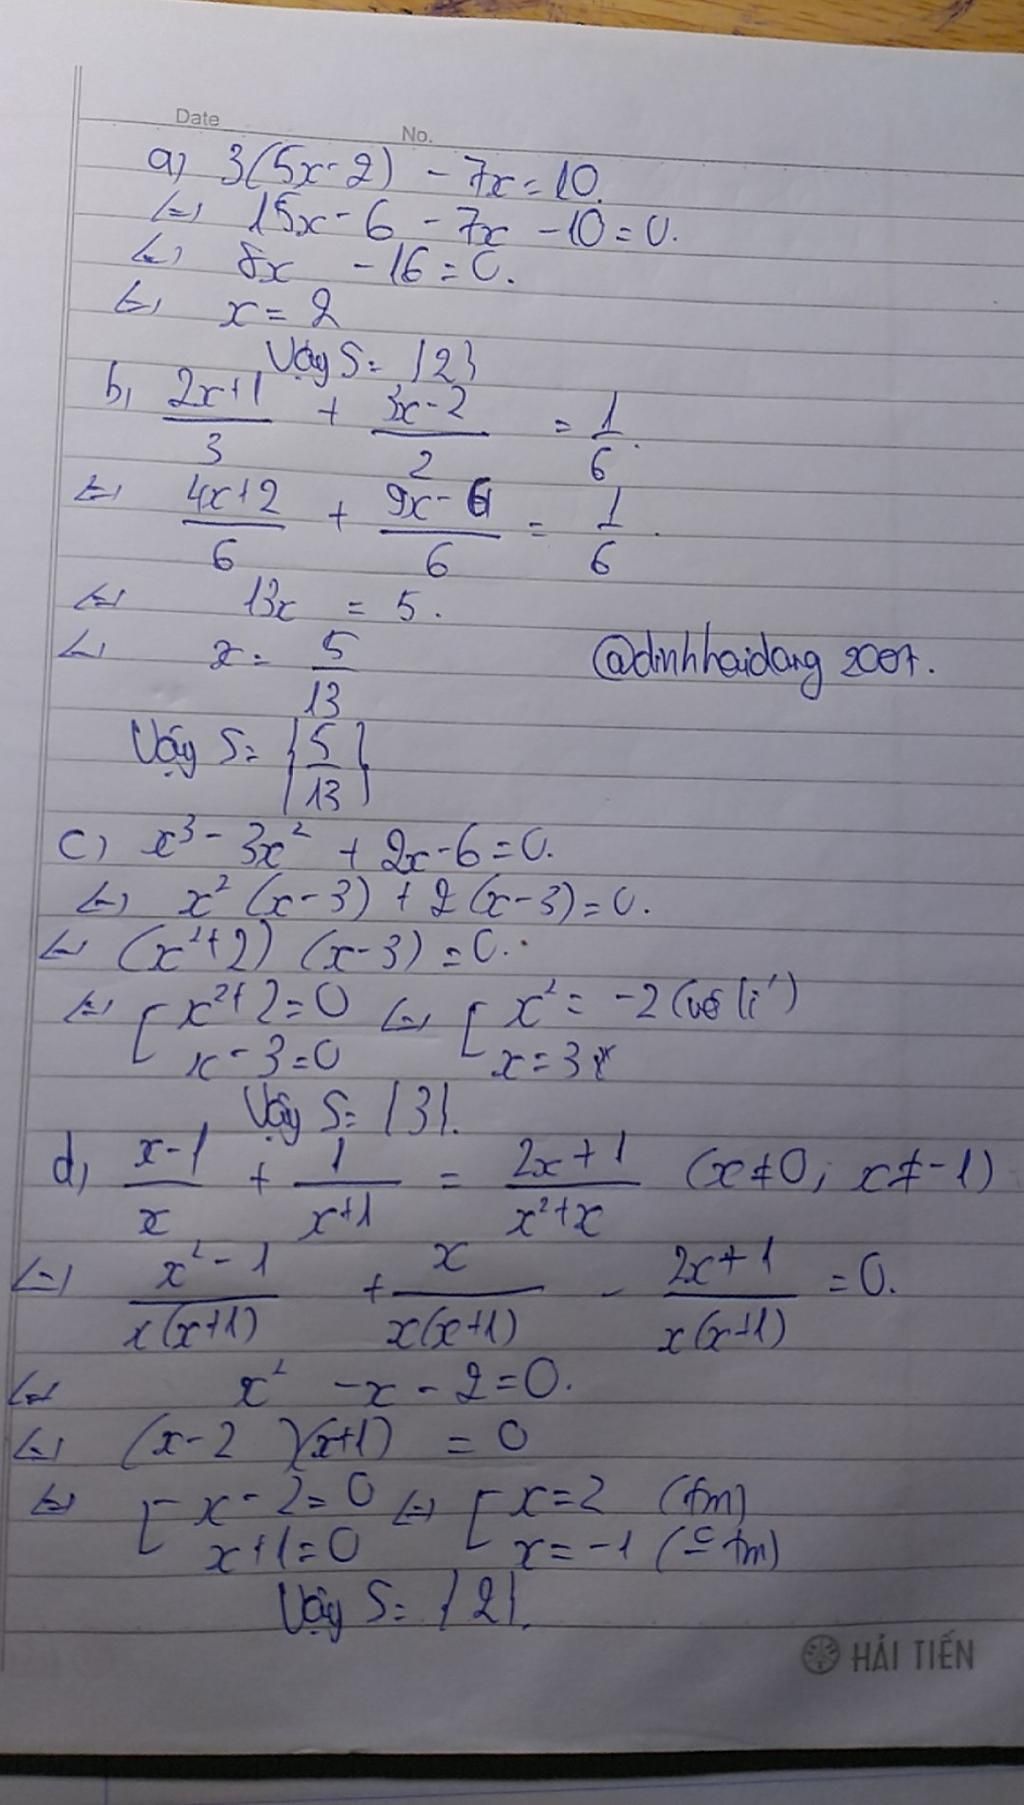 Date No.
a) 3(5x-2) - 7x = 10.
<=> 15x - 6 - 7x - 10 = 0.
<=> 8x - 16 = 0.
<=> x = 2
Vậy S = {2}
b, (2x+1)/3 + (3x-2)/2 = 1/6.
<=> (4x+2)/6 + (9x-6)/6 = 1/6.
<=> 13x = 5.
<=> x = 5/13
@dinhhaidang2007.
Vậy S = {5/13}
c) x³ - 3x² + 2x - 6 = 0.
<=> x² (x-3) + 2(x-3) = 0.
<=> (x²+2) (x-3) = 0.
<=> [ x²+2=0 <=> [ x² = -2 (vô lí)
x-3=0 x=3
Vậy S = {3}.
d, (x-1)/x + 1/(x+1) = (2x+1)/(x²+x) (x≠0; x≠-1)
<=> (x²-1)/(x(x+1)) + x/(x(x+1)) - (2x+1)/(x(x+1)) = 0.
<=> x² - x - 2 = 0.
<=> (x-2)(x+1) = 0
<=> [ x-2=0 <=> [ x=2 (tm)
x+1=0 x=-1 (tm)
Vậy S = {2}.
HẢI TIẾN